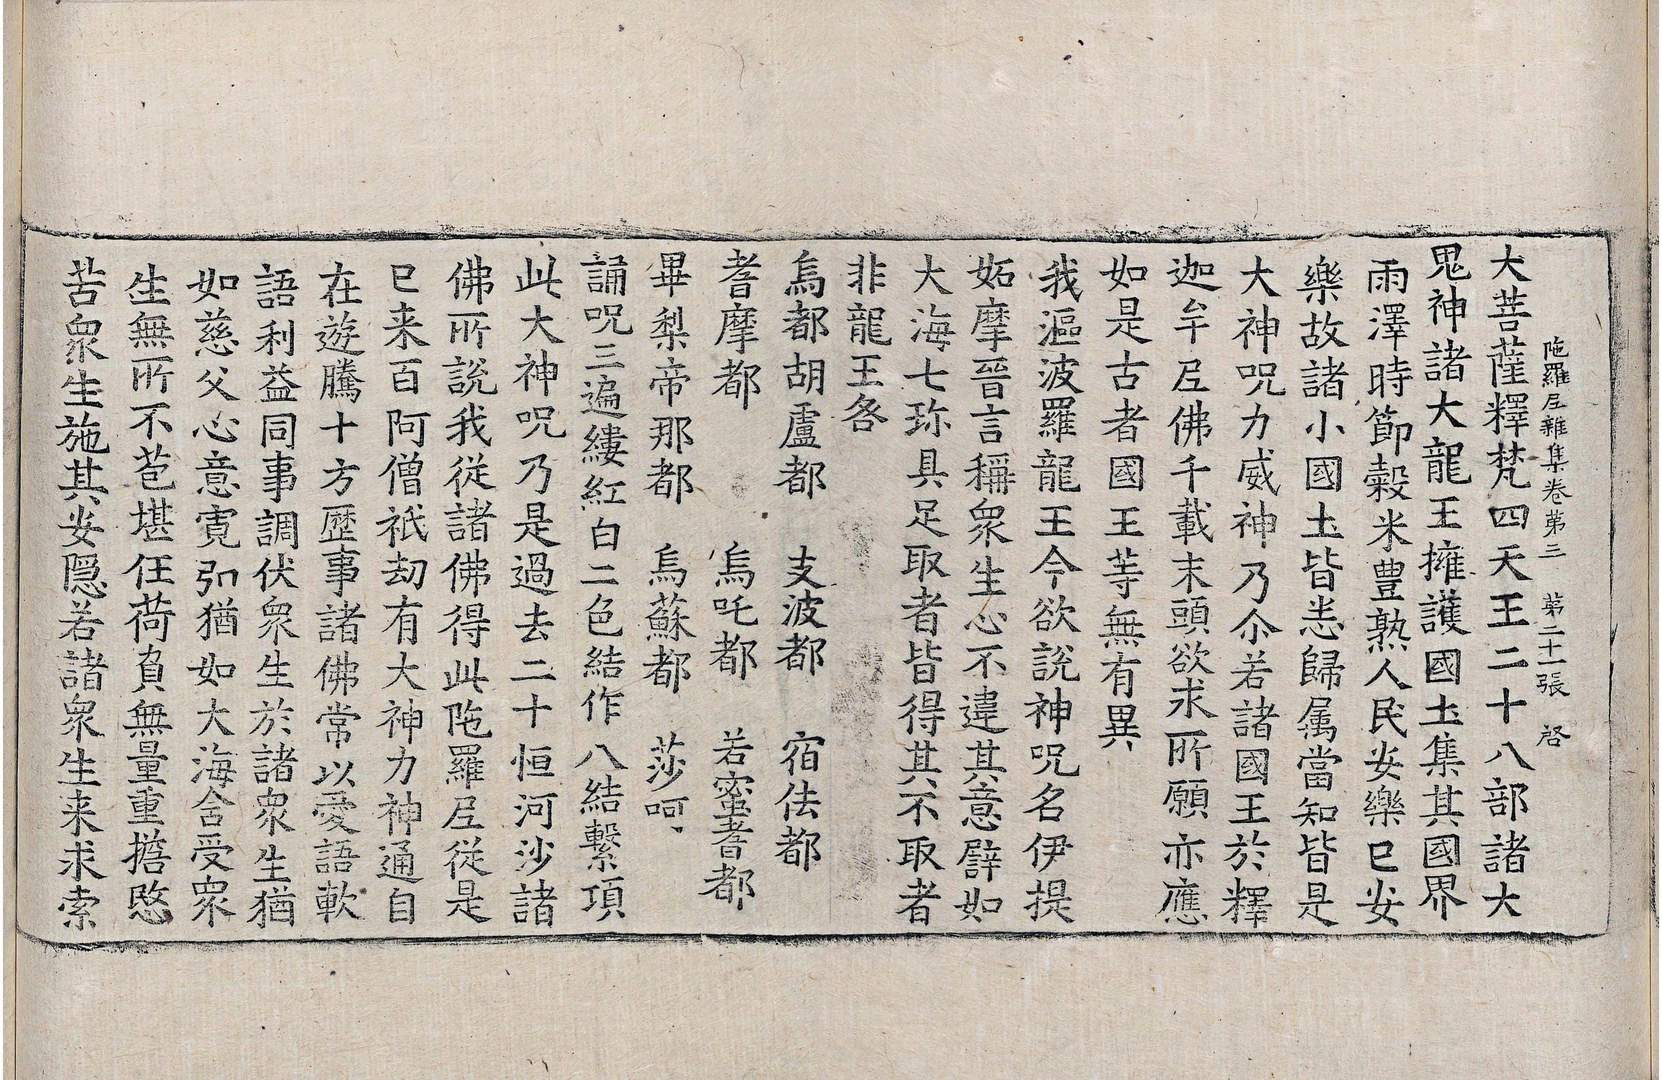 陁羅尼雜集卷第三　第二十一張　啓
大菩薩釋梵四天王二十八部諸大
鬼神諸大龍王擁護國土集其國界
雨澤時節穀米豊熟人民安樂已安
樂故諸小國土皆悉歸属當知皆是
大神呪力威神乃尒若諸國王於釋
迦牟尼佛千載末頭欲求所願亦應
如是古者國王等無有異
我漚波羅龍王今欲說神呪名伊提
妬摩晉言稱衆生心不違其意譬如
大海七珎具足取者皆得其不取者
非龍王咎
烏都胡盧都　支波都　宿佉都
耆摩都　烏吒都　若蜜耆都
畢梨帝那都　烏蘇都　莎呵
誦呪三遍縷紅白二色結作八結繫項
此大神呪乃是過去二十恒河沙諸
佛所說我從諸佛得此陁羅尼從是
已来百阿僧祇劫有大神力神通自
在遊騰十方歷事諸佛常以愛語軟
語利益同事調伏衆生於諸衆生猶
如慈父心意寛弘猶如大海舍受衆
生無所不苞堪任荷負無量重擔愍
苦衆生施其安隠若諸衆生来求索